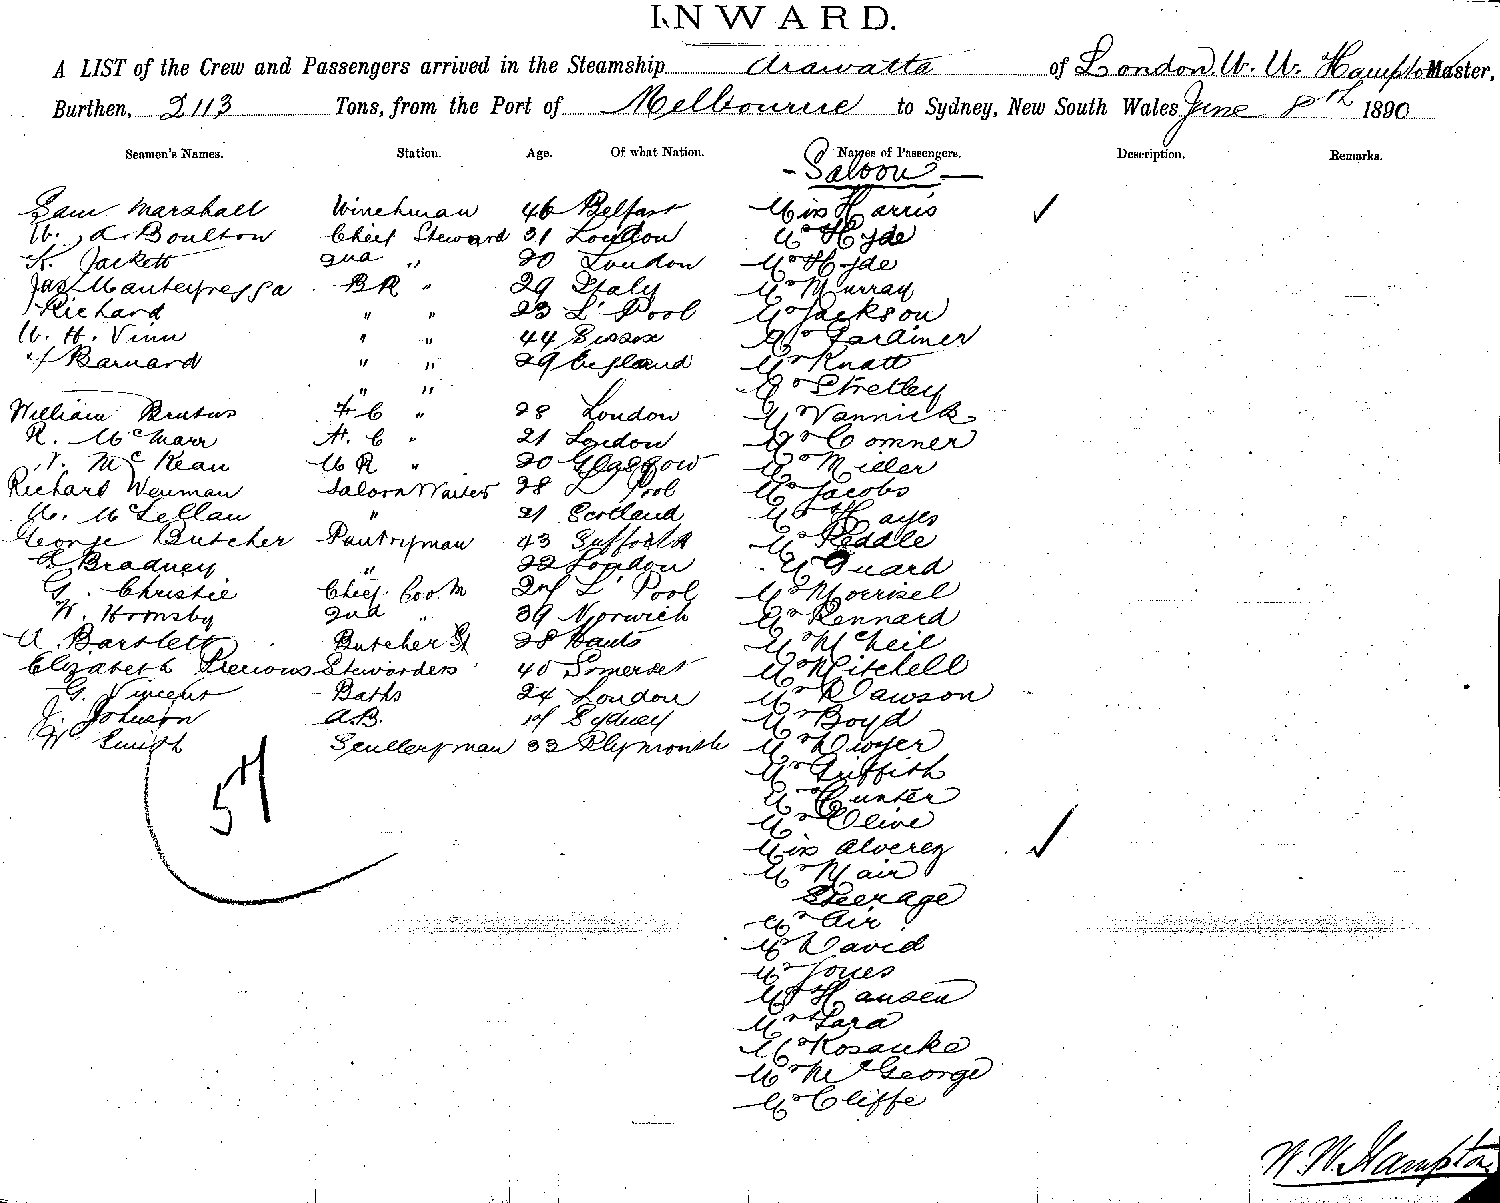 INWARD.
A LIST of the Crew and Passengers arrived in the Steamship Arawatta of London, W. W. Hampton Master,
Burthen, 2113 Tons, from the Port of Melbourne to Sydney, New South Wales June 8th 1890
Seamen's Names. Station. Age. Of what Nation. Names of Passengers. Description. Remarks.
- Saloon -
Sam Marshall Winchman 46 Belfast Miss Harris ✓
Boulton Chief Steward 31 London Mr Hyde
Jackett 2nd " 20 London Mr Hyde
Jas BR " 29 Italy Mr Murray
Richard " " 23 L'Pool Mr Jackson
W. H. Vinn " " 44 Sussex Mr Gardiner
Barnard " " 29 England Mr Knatt
" " Mr Stretley
William Brutus F C " 28 London Mr Vannick
R. McMarr F. C " 21 London Mr Comner
McKean " 20 Glasgow Mr Miller
Richard Wenman Saloon Waiter 28 L Pool Mr Jacobs
McLellan " 21 Scotland Mr Hayes
George Butcher Pantryman 43 Suffolk Mr Peddle
Bradney " 22 London Mr Guard
G. Christie Chief Cook L'Pool Mr Morrisel
W. Hornsby 2nd " 39 Norwich Mr Rennard
Bartlett Butcher 28 Hants Mr McNeil
Elizabeth Precious Stewardess 40 Somerset Mr Mitchell
G. Vincent Baths 24 London Mr Dawson
J. Johnson A.B. Sydney Mr Boyd
W Smith Sculleryman 33 Plymouth Mr Dwyer
Mr Griffith
Mr Cunter
57 Mr Olive
Miss Alverez ✓
Mr Mair
Steerage
Mr Air
Mr David
Mr Jones
Mr Hansen
Mr Lara
Mr Rosanke
Mr McGeorge
Mr Cliffe
W. W. Hampton